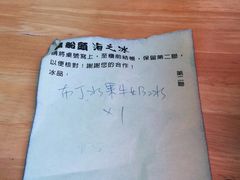 船頭 海之冰
請將桌號寫上，至櫃檯結帳，保留第二聯，
以便核對！謝謝您的合作！
冰品：
第二聯
布丁水果牛奶冰
×1